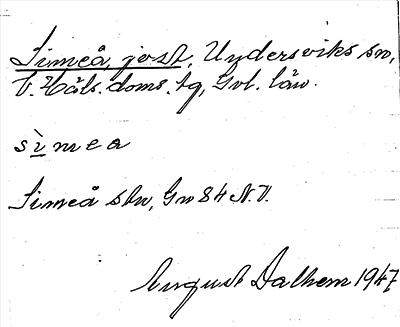 Simeå, jvst, Undersviks sn,
V. Häls. doms. tg, Gvl. län.
sìmea
Simeå stn, Gv 84 N.V.
August Dalhem 1947